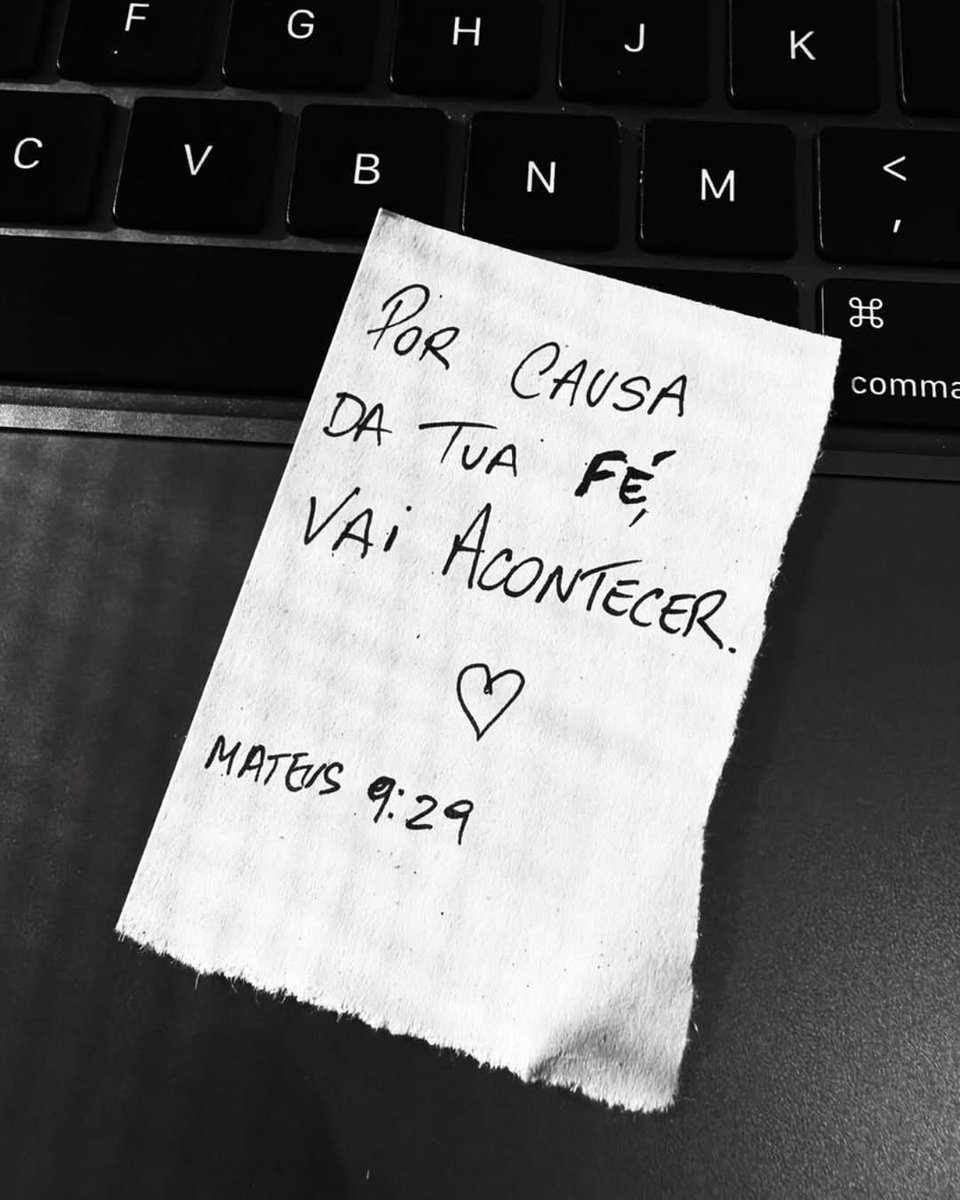 F G H J K
C V B N M <
,
⌘
comma
POR CAUSA
DA TUA FÉ,
VAI ACONTECER.
♡
MATEUS 9:29